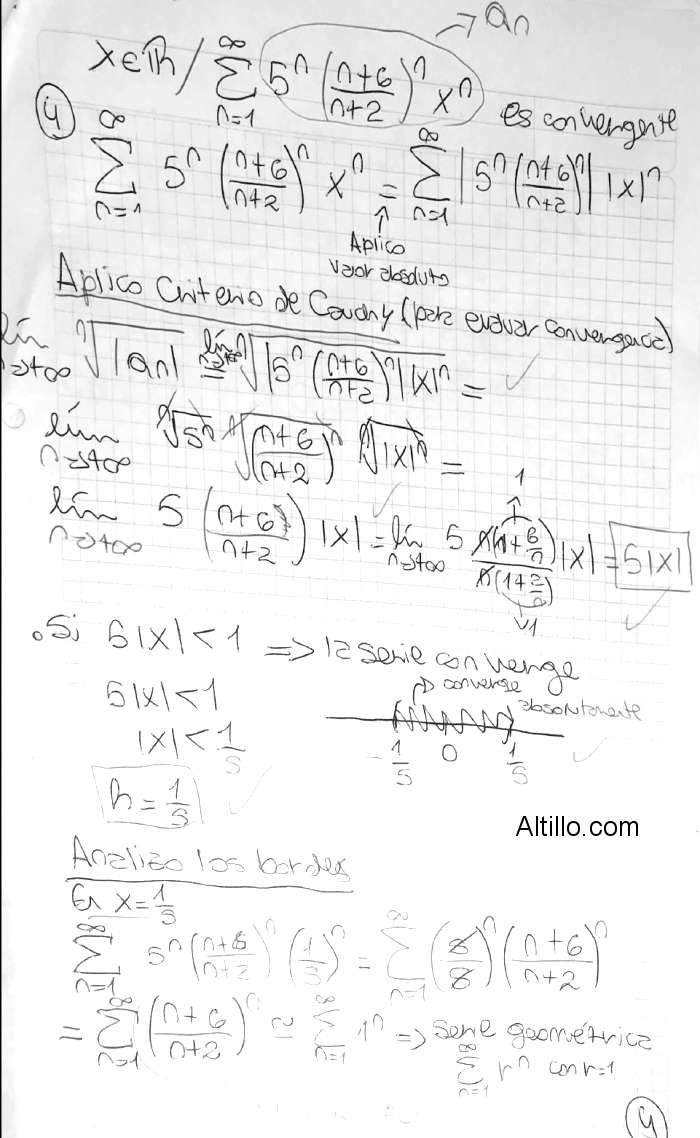 → an
x∈ℝ / ∑_{n=1}^{∞} 5^n ((n+6)/(n+2))^n x^n es convergente
④ ∑_{n=1}^{∞} 5^n ((n+6)/(n+2))^n x^n = ∑_{n=1}^{∞} |5^n ((n+6)/(n+2))^n| |x|^n
↑
Aplico
valor absoluto
Aplico Criterio de Cauchy (para evaluar convergencia)
lím_{n→+∞} ⁿ√|an| = lím_{n→+∞} ⁿ√(|5^n ((n+6)/(n+2))^n| |x|^n) = ✓
lím_{n→+∞} ⁿ√(5^n) ⁿ√(((n+6)/(n+2))^n) ⁿ√(|x|^n) =
lím_{n→+∞} 5 ((n+6)/(n+2)) |x| = lím_{n→+∞} 5 (n(1+6/n))/(n(1+2/n)) |x| = 5|x|
→1
→1
. Si 5|x| < 1 ⇒ la serie converge
5|x| < 1
→ converge absolutamente
|x| < 1/5
-1/5 0 1/5 ✓
r = 1/5 ✓
Altillo.com
Analizo los bordes
En x = 1/5
∑_{n=1}^{∞} 5^n ((n+6)/(n+2))^n (1/5)^n = ∑_{n=1}^{∞} (5/5)^n ((n+6)/(n+2))^n
= ∑_{n=1}^{∞} ((n+6)/(n+2))^n ≃ ∑_{n=1}^{∞} 1^n ⇒ serie geométrica
∑_{n=1}^{∞} r^n con r=1
④